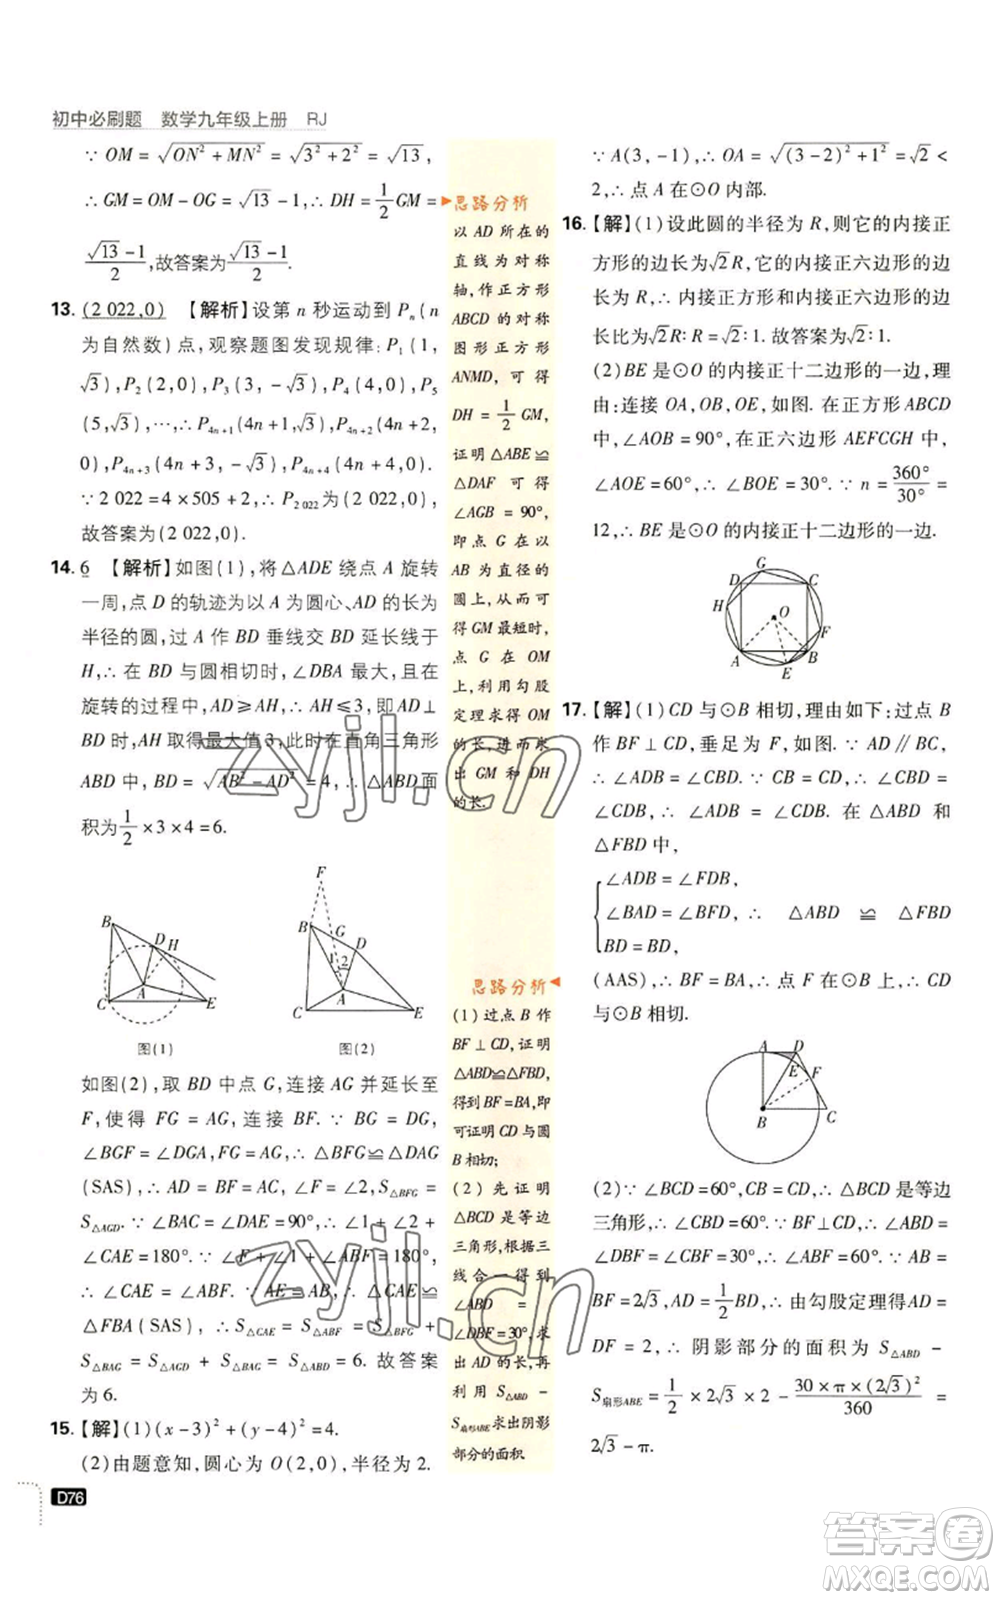 初中必刷题 数学九年级上册 RJ
∵ OM = √(ON² + MN²) = √(3² + 2²) = √13,
∴ GM = OM - OG = √13 - 1,∴ DH = 1/2 GM =
(√13 - 1)/2,故答案为(√13 - 1)/2.
13. (2 022,0) 【解析】设第 n 秒运动到 Pₙ(n
为自然数)点,观察题图发现规律:P₁(1,
√3),P₂(2,0),P₃(3,-√3),P₄(4,0),P₅
(5,√3),…,∴ P₄ₙ₊₁(4n+1,√3),P₄ₙ₊₂(4n+2,
0),P₄ₙ₊₃(4n+3,-√3),P₄ₙ₊₄(4n+4,0).
∵ 2 022 = 4×505+2,∴ P₂ ₀₂₂为(2 022,0),
故答案为(2 022,0).
14. 6 【解析】如图(1),将△ADE 绕点 A 旋转
一周,点 D 的轨迹为以 A 为圆心、AD 的长为
半径的圆,过 A 作 BD 垂线交 BD 延长线于
H,∴ 在 BD 与圆相切时,∠DBA 最大,且在
旋转的过程中,AD≥AH,∴ AH≤3,即 AD⊥
BD 时,AH 取得最大值 3,此时在直角三角形
ABD 中,BD = √(AB² - AD²) = 4,∴ △ABD 面
积为1/2×3×4=6.
B
D
H
A
C
E
图(1)
F
B
G
D
1
2
A
C
E
图(2)
如图(2),取 BD 中点 G,连接 AG 并延长至
F,使得 FG = AG,连接 BF. ∵ BG = DG,
∠BGF = ∠DGA,∴ △BFG≌△DAG
(SAS),∴ AD = BF = 3,∠F = ∠2,S△BFG =
S△AGD. ∵ ∠BAC = ∠DAE = 90°,∴ ∠1 + ∠2 +
∠CAE = 180°. ∵ ∠F + ∠1 + ∠ABF = 180°,
∴ ∠CAE = ∠ABF. ∵ AE = AB,∴ △CAE ≌
△FBA(SAS),∴ S△CAE = S△FBA = S△BFG +
S△BAG = S△AGD + S△BAG = S△ABD = 6. 故答案
为 6.
15. 【解】(1)(x-3)²+(y-4)²=4.
(2)由题意知,圆心为 O(2,0),半径为 2.
D76
思路分析
以 AD 所在的
直线为对称
轴,作正方形
ABCD 的对称
图形正方形
ANMD,可得
DH = 1/2 GM,
证明△ABE≌
△DAF 可得
∠AGB = 90°,
即点 G 在以
AB 为直径的
圆上,从而可
得 GM 最短时,
点 G 在 OM
上,利用勾股
定理求得 OM
的长,进而求
出 GM 和 DH
的长.
思路分析
(1)过点 B 作
BF⊥CD,证明
△ABD≌△FBD,
得到 BF=BA,即
可证明 CD 与圆
B 相切;
(2)先证明
△BCD 是等边
三角形,根据三
线合一得到
∠ABD =
∠DBF=30°,求
出 AD 的长,再
利用 S△ABD -
S扇形ABE求出阴影
部分的面积.
∵ A(3,-1),∴ OA = √((3-2)²+1²) = √2 <
2,∴ 点 A 在⊙O 内部.
16. 【解】(1)设此圆的半径为 R,则它的内接正
方形的边长为√2R,它的内接正六边形的边
长为 R,∴ 内接正方形和内接正六边形的边
长比为√2R∶R=√2∶1. 故答案为√2∶1.
(2)BE 是⊙O 的内接正十二边形的一边,理
由:连接 OA,OB,OE,如图. 在正方形 ABCD
中,∠AOB = 90°,在正六边形 AEFCGH 中,
∠AOE = 60°,∴ ∠BOE = 30°. ∵ n = 360°/30° =
12,∴ BE 是⊙O 的内接正十二边形的一边.
G
D
C
H
O
F
A
B
E
17. 【解】(1)CD 与⊙B 相切,理由如下:过点 B
作 BF⊥CD,垂足为 F,如图. ∵ AD∥BC,
∴ ∠ADB = ∠CBD. ∵ CB = CD,∴ ∠CBD =
∠CDB,∴ ∠ADB = ∠CDB. 在△ABD 和
△FBD 中,
∠ADB = ∠FDB,
∠BAD = ∠BFD,∴ △ABD ≌ △FBD
BD = BD,
(AAS),∴ BF = BA,∴ 点 F 在⊙B 上,∴ CD
与⊙B 相切.
A
D
E
F
B
C
(2)∵ ∠BCD=60°,CB=CD,∴ △BCD 是等边
三角形,∴ ∠CBD = 60°. ∵ BF⊥CD,∴ ∠ABD
= ∠DBF = ∠CBF = 30°,∴ ∠ABF = 60°. ∵ AB =
BF = 2√3,AD = 1/2 BD,∴ 由勾股定理得AD =
DF = 2,∴ 阴影部分的面积为 S△ABD -
S扇形ABE = 1/2 × 2√3 × 2 - (30 × π × (2√3)²)/360 =
2√3 - π.
zyjl.cn
zyjl.cn
答案圈
MXQE.COM